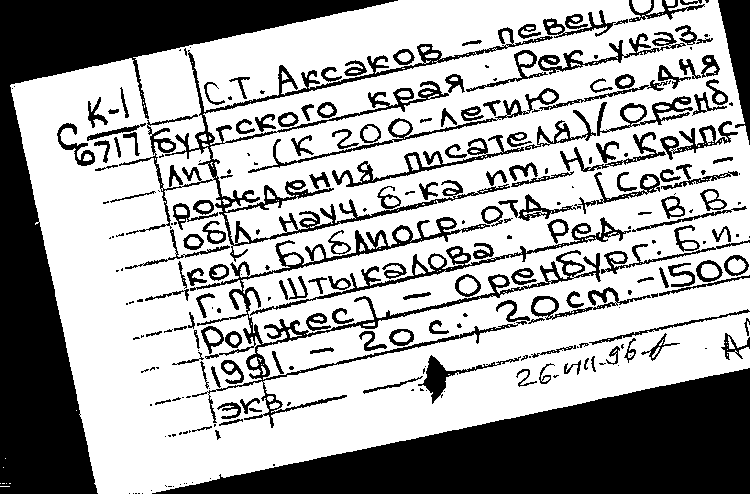 С.Т. Аксаков - певец Орен
К-1
С 6717
бургского края : Рек. указ.
лит. : (К 200-летию со дня
рождения писателя) / Оренб.
обл. науч. б-ка им. Н.К. Крупс-
кой. Библиогр. отд. ; [Сост. -
Г.М. Штыкалова ; Ред. - В.В.
Ронжес]. - Оренбург : Б.и.
1991. - 20 с. ; 20 см. - 1500
экз.
26.VIII.96